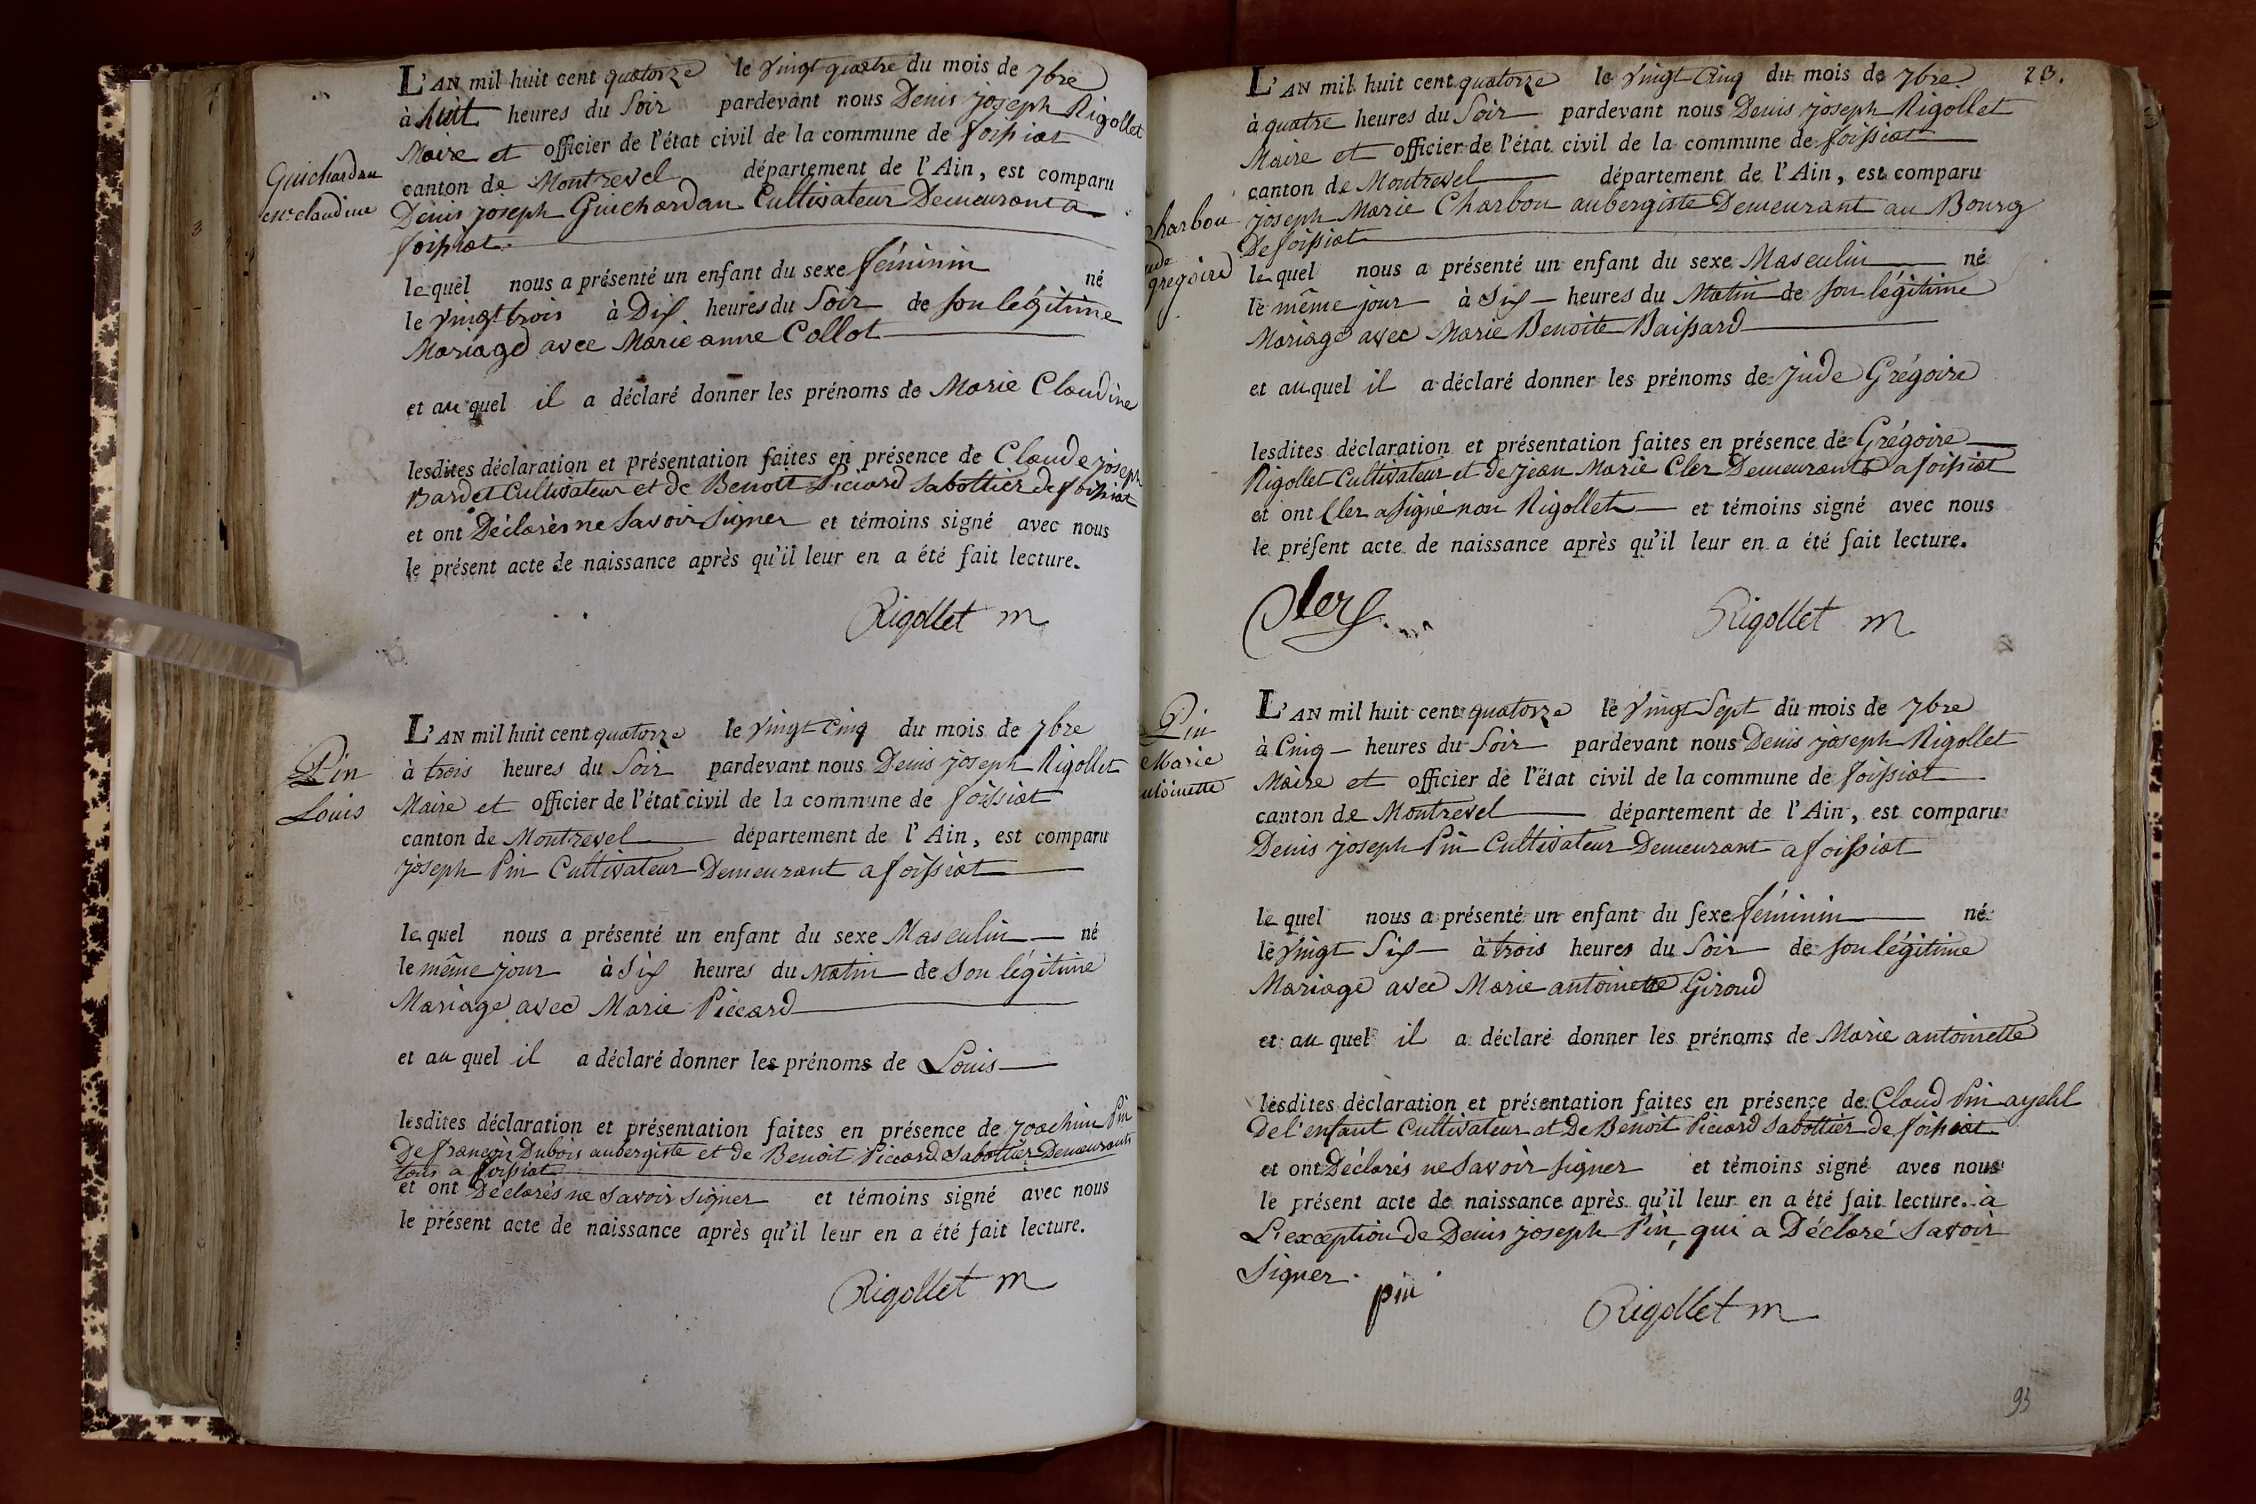 L'AN mil huit cent quatorze le vingt quatre du mois de 7bre
à huit heures du Soir pardevant nous Denis joseph Rigollet
Maire et officier de l'état civil de la commune de foissiat
canton de Montrevel département de l'Ain, est comparu
Guichardan
Denis joseph Guichardan Cultivateur Demeurant a
claudine
foissiat.
le quel nous a présenté un enfant du sexe féminin né
le vingt trois à Dix heures du Soir de son légitime
Mariage avec Marie anne Collot
et au quel il a déclaré donner les prénoms de Marie Claudine
lesdites déclaration et présentation faites en présence de Claude joseph
Bardet Cultivateur et de Benoit Piccard Sabottier de foissiat
et ont Déclarés ne Savoir Signer et témoins signé avec nous
le présent acte de naissance après qu'il leur en a été fait lecture.
Rigollet m
L'AN mil huit cent quatorze le vingt Cinq du mois de 7bre
Pin
Louis
à trois heures du Soir pardevant nous Denis joseph Rigollet
Maire et officier de l'état civil de la commune de foissiat
canton de Montrevel département de l'Ain, est comparu
joseph Pin Cultivateur Demeurant a foissiat
le quel nous a présenté un enfant du sexe Masculin né
le même jour à Six heures du Matin de Son légitime
Mariage avec Marie Piccard
et au quel il a déclaré donner les prénoms de Louis
lesdites déclaration et présentation faites en présence de joachim Pin
De françois Dubois aubergiste et de Benoit Piccard Sabottier Demeurants
tous a foissiat
et ont Déclarés ne Savoir Signer et témoins signé avec nous
le présent acte de naissance après qu'il leur en a été fait lecture.
Rigollet m
23.
L'AN mil huit cent quatorze le vingt Cinq du mois de 7bre
à quatre heures du Soir pardevant nous Denis joseph Rigollet
Maire et officier de l'état civil de la commune de foissiat
canton de Montrevel département de l'Ain, est comparu
harbon
ude
gregoire
joseph Marie Charbon aubergiste Demeurant au Bourg
De foissiat
le quel nous a présenté un enfant du sexe Masculin né
le même jour à Six heures du Matin de son légitime
Mariage avec Marie Benoite Baissard
et au quel il a déclaré donner les prénoms de jude Grégoire
lesdites déclaration et présentation faites en présence de Grégoire
Rigollet Cultivateur et de jean Marie Cler Demeurants a foissiat
et ont Cler a signé non Rigollet et témoins signé avec nous
le présent acte de naissance après qu'il leur en a été fait lecture.
Cler
Rigollet m
L'AN mil huit cent quatorze le vingt Sept du mois de 7bre
Pin
Marie
ntoinette
à Cinq heures du Soir pardevant nous Denis joseph Rigollet
Maire et officier de l'état civil de la commune de foissiat
canton de Montrevel département de l'Ain, est comparu
Denis joseph Pin Cultivateur Demeurant a foissiat
le quel nous a présenté un enfant du sexe féminin né
le vingt Six à trois heures du Soir de son légitime
Mariage avec Marie antoinette Giroud
et au quel il a déclaré donner les prénoms de Marie antoinette
lesdites déclaration et présentation faites en présence de Claud Pin
De l'enfant Cultivateur et De Benoit Piccard Sabottier de foissiat
et ont Déclarés ne Savoir Signer et témoins signé avec nous
le présent acte de naissance après qu'il leur en a été fait lecture. à
L'exception de Denis joseph Pin, qui a Déclaré Savoir
Signer.
pin
Rigollet m
93